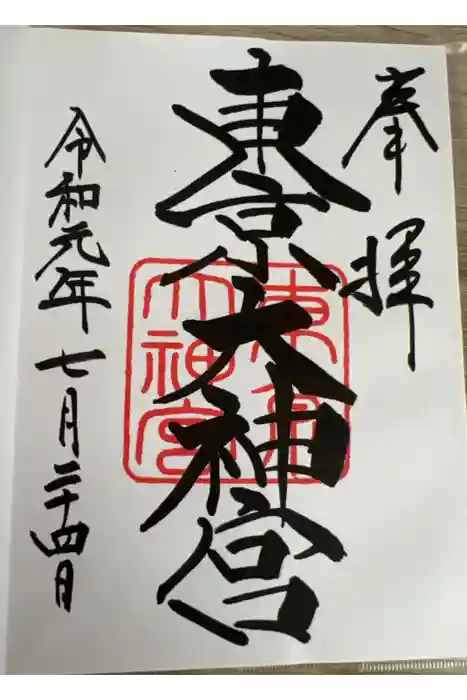 奉拝
東京大神宮
東京
大神宮
令和元年七月二十四日